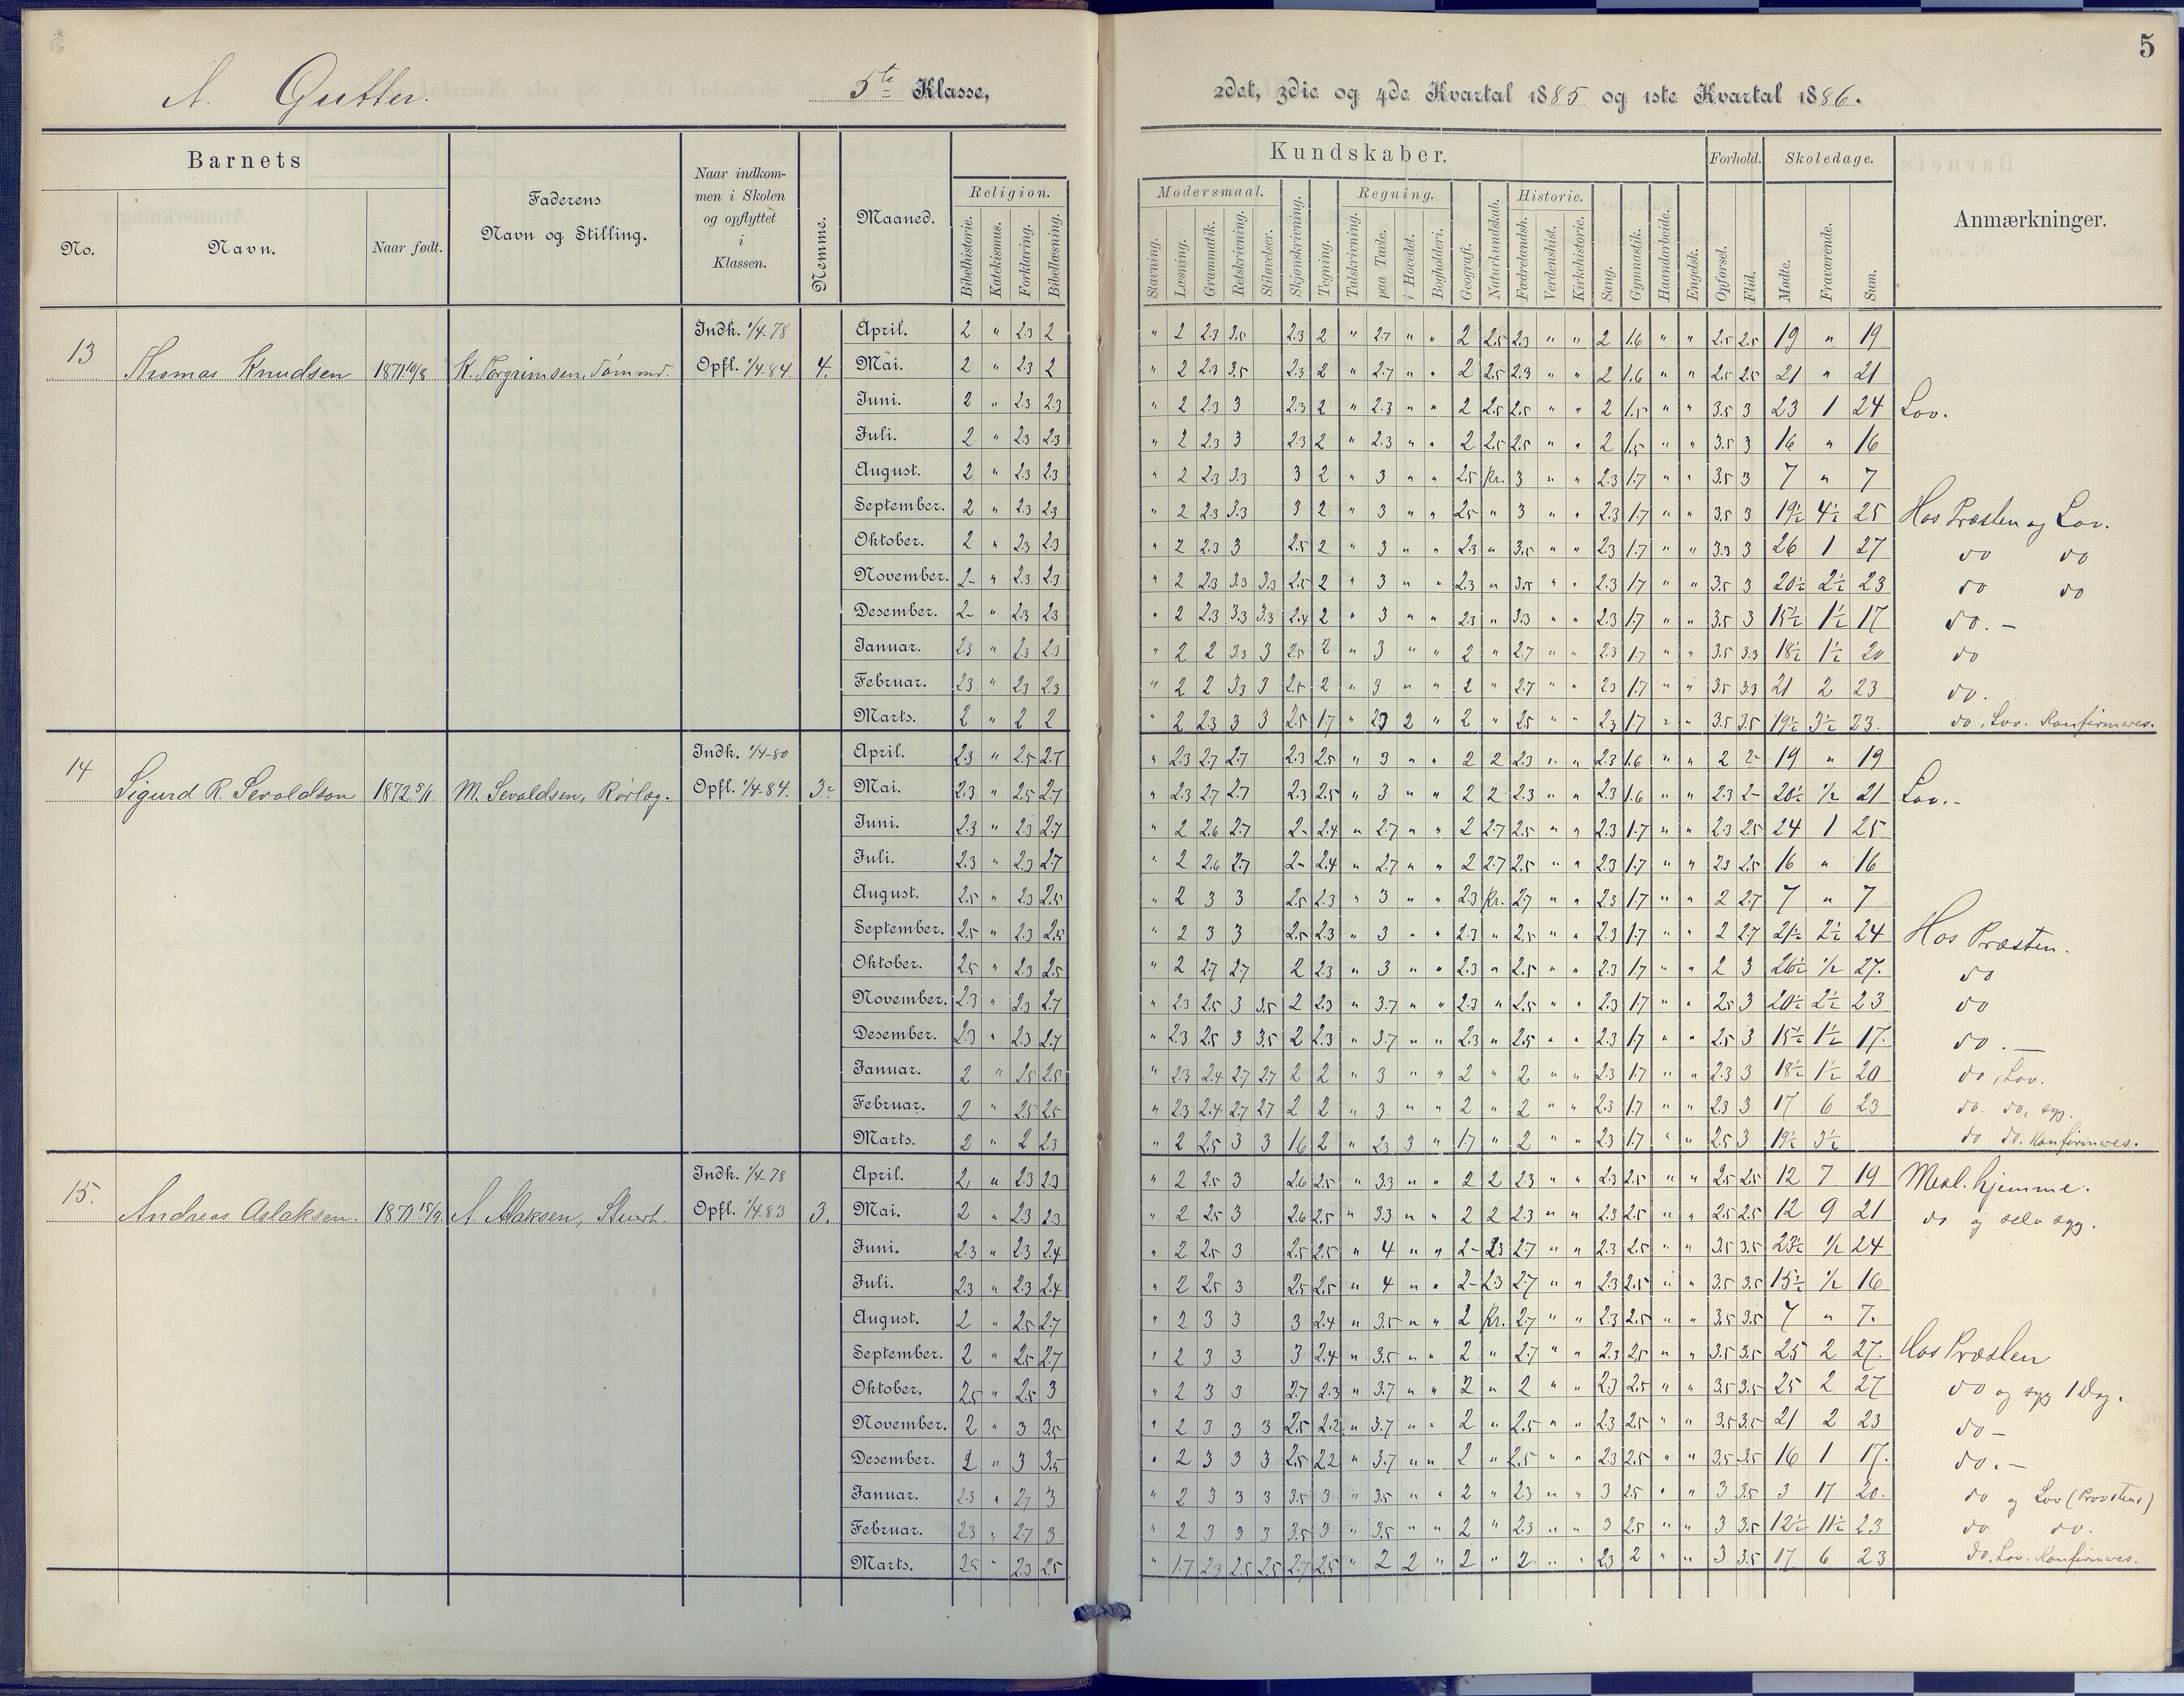 5
A. Gutter. 5te Klasse, 2det, 3die og 4de Kvartal 1885 og 1ste Kvartal 1886.
Barnets
No.
Navn.
Naar født.
Faderens
Navn og Stilling.
Naar indkom-
men i Skolen
og opflyttet
i
Klassen.
Nemme.
Maaned.
Kundskaber.
Religion.
Bibelhistorie.
Katekismus.
Forklaring.
Bibellæsning.
Modersmaal.
Stavning.
Læsning.
Grammatik.
Retskrivning.
Stiløvelser.
Skjønskrivning.
Tegning.
Regning.
Talskrivning.
paa Tavle.
i Hovedet.
Bogholderi.
Geografi.
Naturkundskab.
Historie.
Fædrelandsh.
Verdenshist.
Kirkehistorie.
Sang.
Gymnastik.
Haandarbeide.
Engelsk.
Forhold.
Opførsel.
Flid.
Skoledage.
Mødte.
Fraværende.
Sum.
Anmærkninger.
13 Thomas Knudsen 1871 K. Torgrimsen, Tømmd. Indk. 1/4 78 Opfl. 1/4 84. 4.
April. 2 " 2.3 2 " 2 2.3 3.5 2.3 2 " 2.7 " " 2 2.5 2.3 " " 2 1.6 " " 2.5 2.5 19 " 19
Mai. 2 " 2.3 2 " 2 2.3 3.5 2.3 2 " 2.7 " " 2 2.5 2.3 " " 2 1.6 " " 2.5 2.5 21 " 21
Juni. 2 " 2.3 2.3 " 2 2.3 3 2.3 2 " 2.3 " " 2 2.5 2.5 " " 2 1.5 " " 3.5 3 23 1 24 Lov.
Juli. 2 " 2.3 2.3 " 2 2.3 3 2.3 2 " 2.3 " " 2 2.5 2.5 " " 2 1.5 " " 3.5 3 16 " 16
August. 2 " 2.3 2.3 " 2 2.3 3.3 3 2 " 3 " " 2.5 Kr. 3 " " 2.3 1.7 " " 3.5 3 7 " 7
September. 2 " 2.3 2.3 " 2 2.3 3.3 3 2 " 3 " " 2.5 " 3 " " 2.3 1.7 " " 3.5 3 19½ 4½ 25 Hos Præsten og Lov.
Oktober. 2 " 2.3 2.3 " 2 2.3 3 2.5 2 " 3 " " 2.3 " 3.5 " " 2.3 1.7 " " 3.3 3 26 1 27 do do
November. 2- " 2.3 2.3 " 2 2.3 3.3 3.3 2.5 2 " 3 " " 2.3 " 3.5 " " 2.3 1.7 " " 3.5 3 20½ 2½ 23 do do
Desember. 2- " 2.3 2.3 " 2 2.3 3.3 3.3 2.4 2 " 3 " " 2.3 " 3.3 " " 2.3 1.7 " " 3.5 3 15½ 1½ 17 do. -
Januar. 2.3 " 2.3 2.3 " 2 2 3.3 3 2.5 2 " 3 " " 2 " 2.7 " " 2.3 1.7 " " 3.5 3.3 18½ 1½ 20 do
Februar. 2.3 " 2.3 2.3 " 2 2 3.3 3 2.5 2 " 3 " " 2 " 2.7 " " 2.3 1.7 " " 3.5 3.3 21 2 23 do.
Marts. 2 " 2 2 " 2 2.3 3 3 2.5 1.7 " 2.3 2 " 2 " 2.5 " " 2.3 1.7 " " 3.5 3.5 19½ 3½ 23. do, Lov. Konfirmeres.
14 Sigurd R. Sevaldson 1872 5/1. M. Sevaldsen, Rørlæg. Indk. 1/4-80 Opfl. 1/4-84.
April. 2.3 " 2.5 2.7 " 2.3 2.7 2.7 2.3 2.5 " 3 " " 2 2 2.3 " " 2.3 1.6 " " 2 2- 19 " 19
Mai. 2.3 " 2.5 2.7 " 2.3 2.7 2.7 2.3 2.5 " 3 " " 2 2 2.3 " " 2.3 1.6 " " 2.3 2- 20½ ½ 21 Lov.-
Juni. 2.3 " 2.3 2.7 " 2 2.6 2.7 2- 2.4 " 2.7 " " 2 2.7 2.5 " " 2.3 1.7 " " 2.3 2.5 24 1 25
Juli. 2.3 " 2.3 2.7 " 2 2.6 2.7 2- 2.4 " 2.7 " " 2 2.7 2.5 " " 2.3 1.7 " " 2.3 2.5 16 " 16
August. 2.5 " 2.3 2.5 " 2 3 3 2.5 2.3 " 3 " " 2.3 Kr. 2.7 " " 2.3 1.7 " " 2 2.7 7 " 7
September. 2.5 " 2.3 2.5 " 2 3 3 2.5 2.3 " 3 " " 2.3 " 2.5 " " 2.3 1.7 " " 2 2.7 21½ 2½ 24 Hos Præsten.
Oktober. 2.5 " 2.3 2.5 " 2 2.7 2.7 2 2.3 " 3 " " 2.3 " 2.5 " " 2.3 1.7 " " 2 3 26½ ½ 27. do
November. 2.3 " 2.3 2.7 " 2.3 2.5 3 3.5 2 2.3 " 3.7 " " 2.3 " 2.5 " " 2.3 1.7 " " 2.5 3 20½ 2½ 23 do
Desember. 2.3 " 2.3 2.7 " 2.3 2.5 3 3.5 2 2.3 " 3.7 " " 2.3 " 2.5 " " 2.3 1.7 " " 2.5 3 15½ 1½ 17. do. -
Januar. 2 " 2.5 2.5 " 2.3 2.4 2.7 2.7 2 2 " 3 " " 2 " 2 " " 2.3 1.7 " " 2.3 3 18½ 1½ 20 do, Lov.
Februar. 2 " 2.5 2.5 " 2.3 2.4 2.7 2.7 2 2 " 3 " " 2 " 2 " " 2.3 1.7 " " 2.3 3 17 6 23 do. do, syg.
Marts. 2 " 2 2.3 " 2 2.5 3 3 1.6 2 " 2.3 3 " 1.7 " 2 " " 2.3 1.7 " " 2.5 3 19½ 3½ do do. Konfirmeres.
15. Andreas Aslaksen. 1871 15/9 A. Aslaksen, Stuert. Indk. 1/4-78 Opfl. 1/4 83 3.
April. 2 " 2.3 2.3 " 2 2.5 3 2.6 2.5 " 3.3 " " 2 2 2.3 " " 2.3 2.5 " " 2.5 2.5 12 7 19 Mesl. hjemme.
Mai. 2 " 2.3 2.3 " 2 2.5 3 2.6 2.5 " 3.3 " " 2 2 2.3 " " 2.3 2.5 " " 2.5 2.5 12 9 21 do og selv syg.
Juni. 2.3 " 2.3 2.4 " 2 2.5 3 2.5 2.5 " 4 " " 2- 2.3 2.7 " " 2.3 2.5 " " 3.5 3.5 23½ ½ 24
Juli. 2.3 " 2.3 2.4 " 2 2.5 3 2.5 2.5 " 4 " " 2- 2.3 2.7 " " 2.3 2.5 " " 3.5 3.5 15½ ½ 16
August. 2 " 2.5 2.7 " 2 3 3 3 2.4 " 3.5 " " 2 Kr. 2.7 " " 2.3 2.5 " " 3.5 3.5 7 " 7.
September. 2 " 2.5 2.7 " 2 3 3 3 2.4 " 3.5 " " 2 " 2.7 " " 2.3 2.5 " " 3.5 3.5 25 2 27. Hos Præsten
Oktober. 2.5 " 2.5 3 " 2 3 3 2.7 2.3 " 3.7 " " 2 " 2 " " 2.3 2.5 " " 3.5 3.5 25 2 27 do og syg 1 Dag.
November. 2 " 3 3.5 " 2 3 3 3 2.5 2.2 " 3.7 " " 2 " 2.5 " " 2.3 2.5 " " 3.5 3.5 21 2 23 do -
Desember. 2 " 3 3.5 " 2 3 3 3 2.5 2.2 " 3.7 " " 2 " 2.5 " " 2.3 2.5 " " 3.5 3.5 16 1 17. do. -
Januar. 2.3 " 2.7 3 " 2 3 3 3 3.5 3 " 3.5 " " 2 " 2.3 " " 3 2.5 " " 3 3.5 3 17. 20. do og Lov (Provstens)
Februar. 2.3 " 2.7 3 " 2 3 3 3 3.5 3 " 3.5 " " 2 " 2.3 " " 3 2.5 " " 3 3.5 12½ 11½ 23 do do.
Marts. 2.5 " 2.3 2.5 " 1.7 2.3 2.5 2.5 2.7 2.5 " 2 2 " 2 " 2 " " 2.3 2 " " 3 3.5 17 6 23 do, Lov. Konfirmeres.